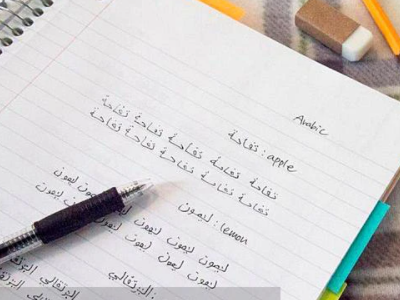 Arabic
تفاحة : apple
تفاحة تفاحة تفاحة تفاحة تفاحة
تفاحة تفاحة تفاحة تفاحة تفاحة
ليمون : lemon
ليمون ليمون ليمون ليمون ليمون
ليمون ليمون ليمون ليمون
البرتقالي :
البرتقالي البرتقالي